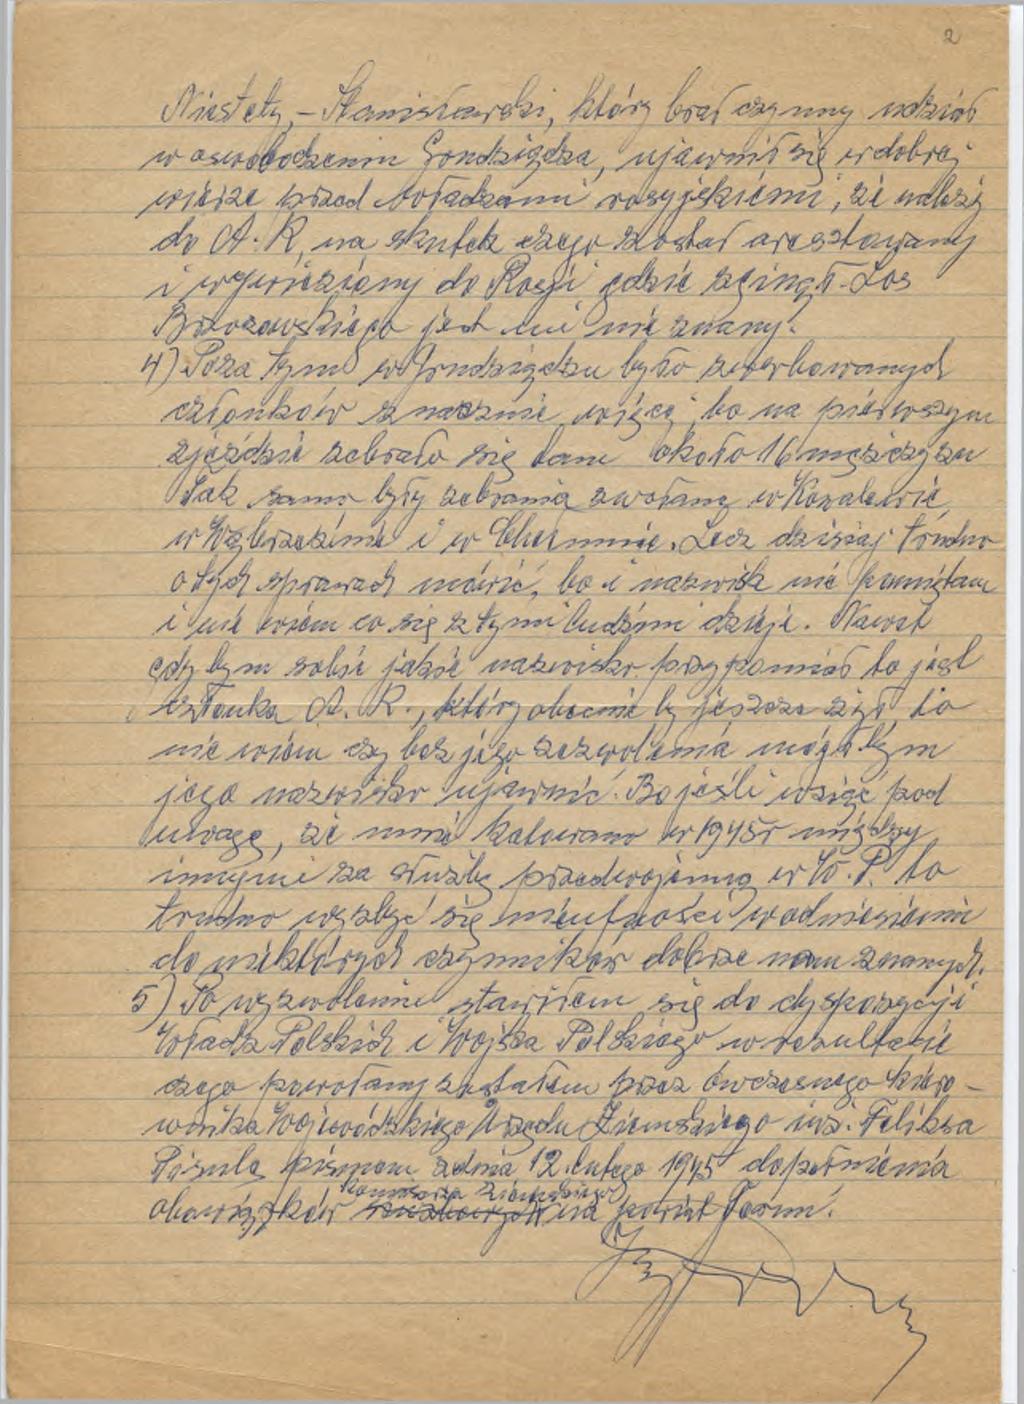 2
Niestety, – Stanisławski, który brał czynny udział
w oswobodzeniu Grudziądza, ujawnił się w dobrej
wierze przed władzami rosyjskiemi, że należy
do A.K, na skutek czego został aresztowany
i wywieziony do Rosji gdzie zginął. Los
Brzozowskiego jest mi nie znany.
4) Poza tym w Grudziądzu było zwerbowanych
członków znacznie więcej, bo na pierwszym
zjeździe zebrało się tam około 16 mężczyzn
Tak samo były zebrania zwołane w Kowalewie,
w Wąbrzeźnie i w Chełmnie. Lecz dzisiaj trudno
o tych sprawach mówić, bo i nazwisk nie pamiętam
i nie wiem co się z tymi ludźmi dzieje. Nawet
gdybym sobie jakieś nazwisko przypomniał to jest
członka A.K., który obecnie by jeszcze żył, to
nie wiem czy bez jego zezwolenia mógłbym
jego nazwisko ujawnić. Bo jeśli wziąć pod
uwagę, że mnie katowano w 1945r między
innymi za służbę przedwojenną w W.P. to
trudno wyzbyć się nieufności w odniesieniu
do niektórych czynników dobrze nam znanych.
5) Po wyzwoleniu stawiłem się do dyspozycji
Władz Polskich i Wojska Polskiego w rezultacie
czego powołany zostałem przez ówczesnego kiero-
wnika Wojewódzkiego Urzędu Ziemskiego inż. Feliksa
Pisulę pismem z dnia 12. lutego 1945 do pełnienia
komisarza Ziemskiego
obowiązków na powiat Toruń.